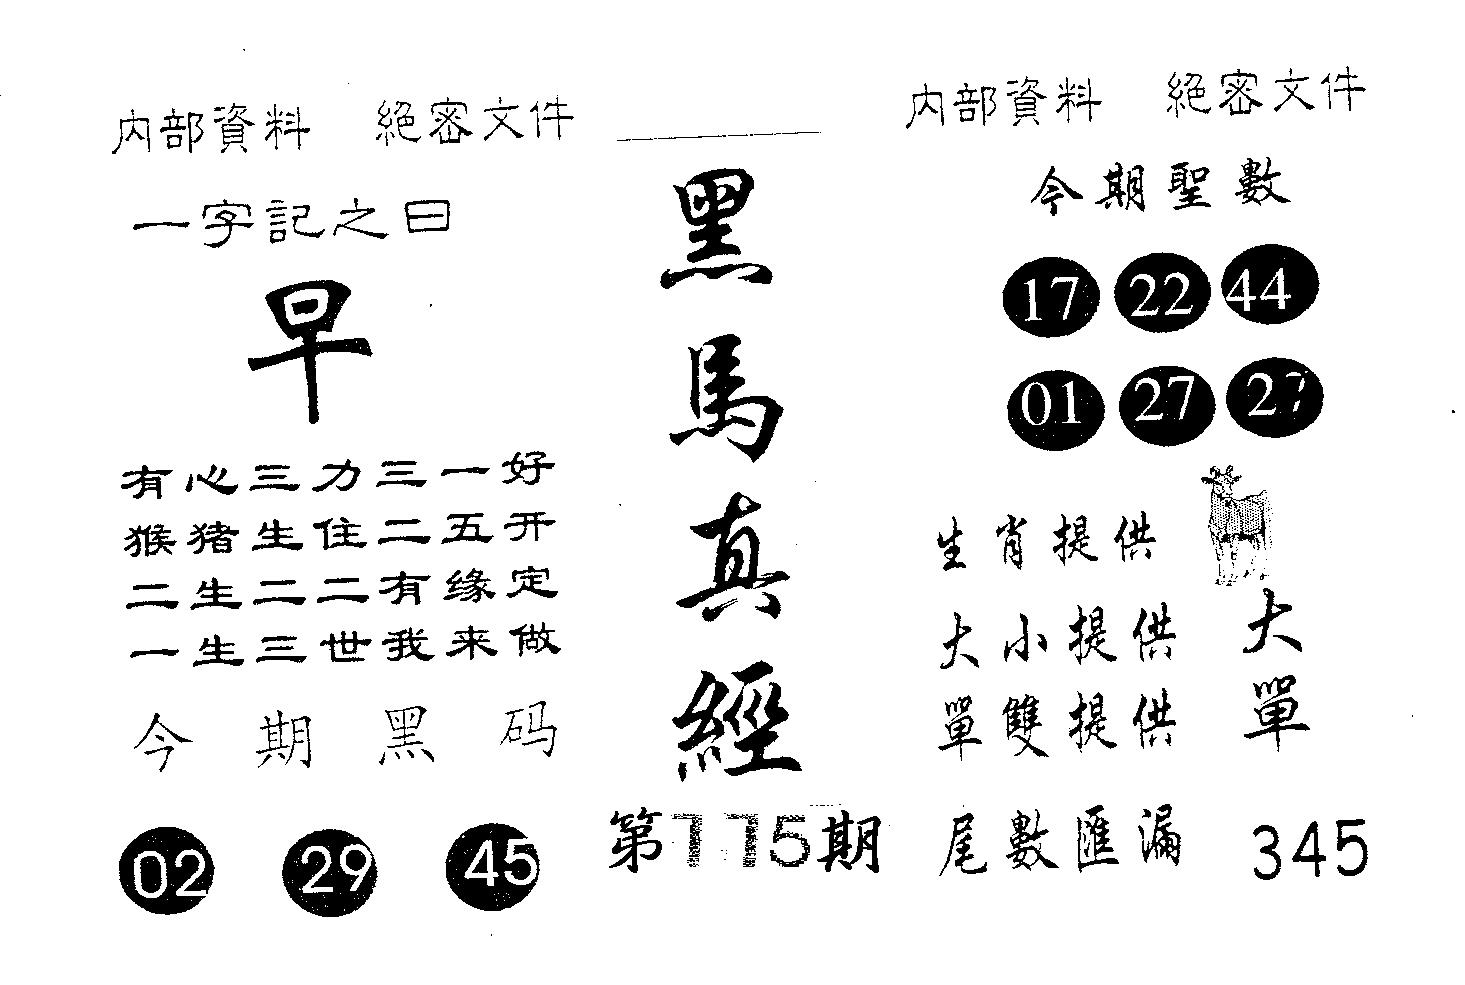 內部資料 絕密文件
一字記之曰
早
有心三力三一好
猴猪生住二五开
二生二二有缘定
一生三世我来做
今期黑码
02 29 45
黑馬真經
第115期
內部資料 絕密文件
今期聖數
17 22 44
01 27 27
生肖提供
大小提供 大
單雙提供 單
尾數匯漏 345